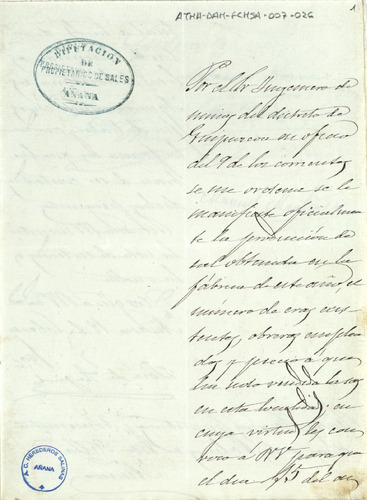 ATHA-DAH-FCHSA-007-026
1
DIPUTACIÓN
DE
PROPIETARIOS DE SALES
AÑANA
Por el Sr Ingeniero de
minas del distrito de
Guipuzcoa en oficio
del 9 de los corrientes
se me ordena se le
manifieste oficialmen
te la producción de
sal obtenida en la
fábrica de este año, el
número de eras exis
tentes, obreros emplea
dos y precio á que
ha sido vendida la sal
en esta localidad; en
cuya virtud les con
voco á VV para que
el dia 15 del ac
A.C. HEREDEROS SALINAS
AÑANA